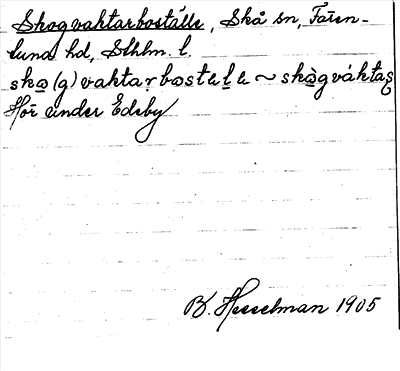 Skogvaktarboställe, Skå sn, Fären-
tuna hd, Sthlm. l.
sko̲(g)vaktarbostɛl̲e ~ skò̲gváktaṣ
Hör under Edeby
B. Hesselman 1905